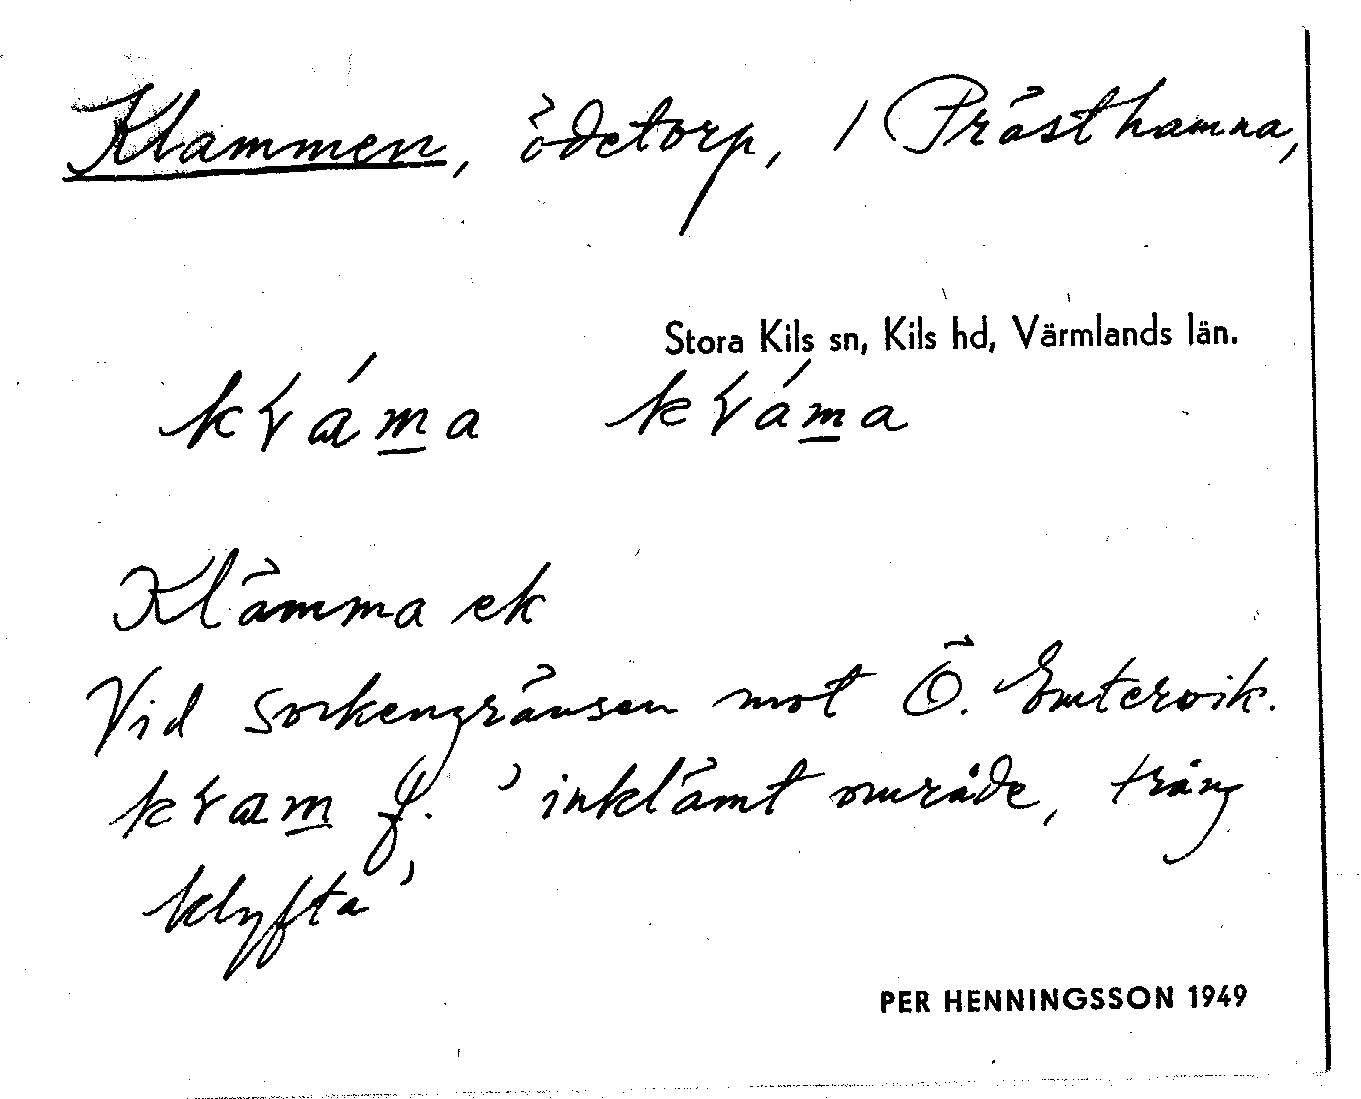 Klammen, ödetorp, / Prästhamna,
Stora Kils sn, Kils hd, Värmlands län.
Klämma ek
Vid sockengränsen mot Ö. Emtervik.
f. 'inklämt område, trång
klyfta'
PER HENNINGSSON 1949